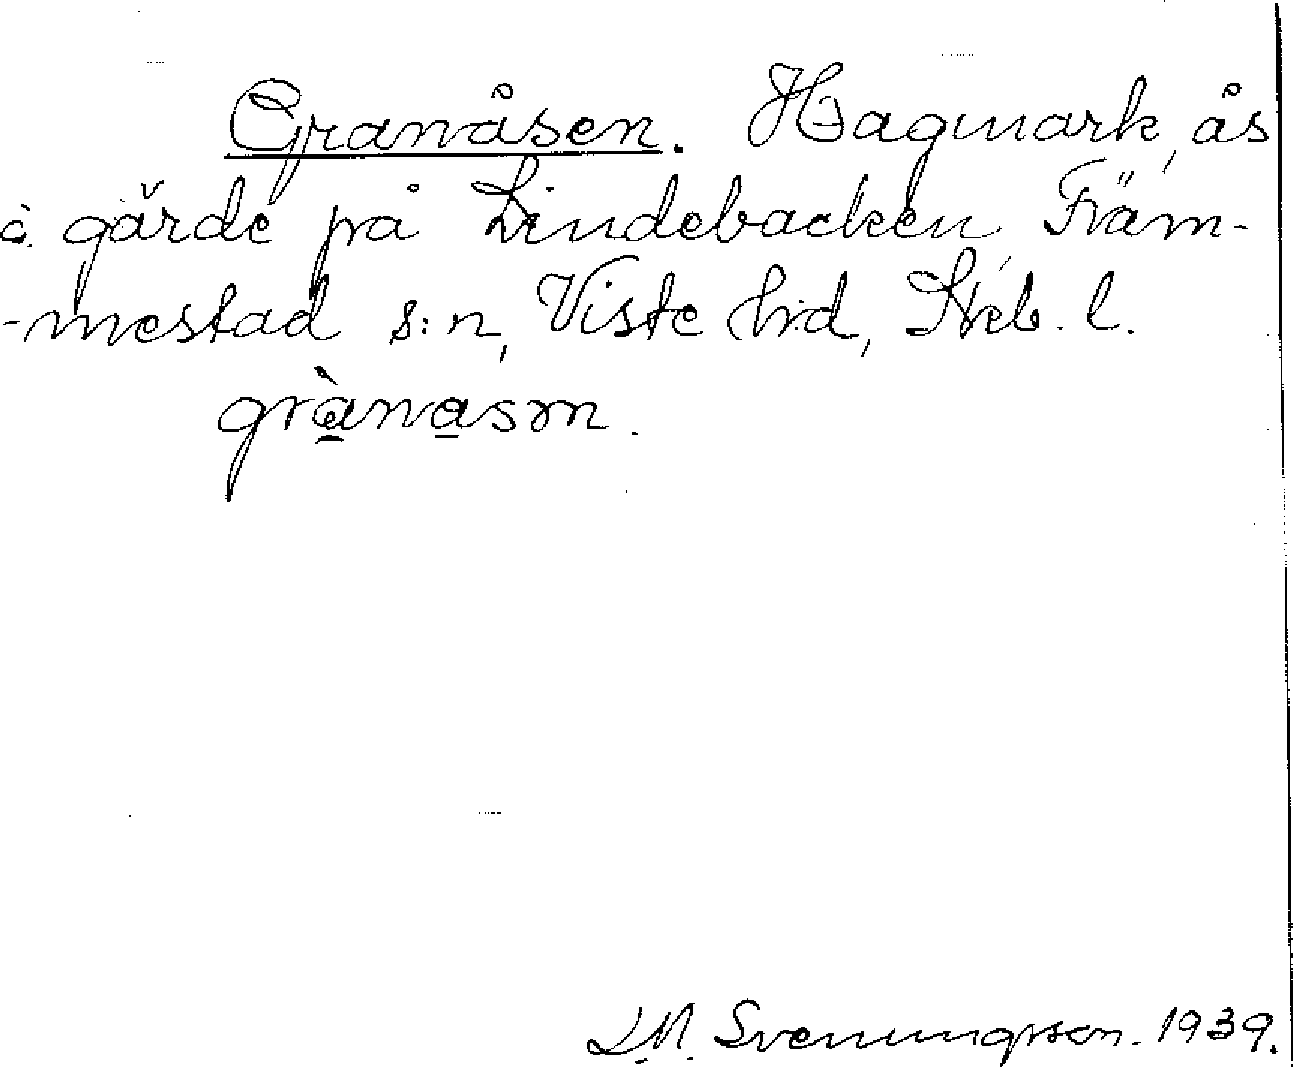 Granåsen. Hagmark, ås
o. gärde på Lindebacken Främ-
-mestad s:n, Viste hrd, Skb. l.
grànasm.
L.M. Svenungsson. 1939.